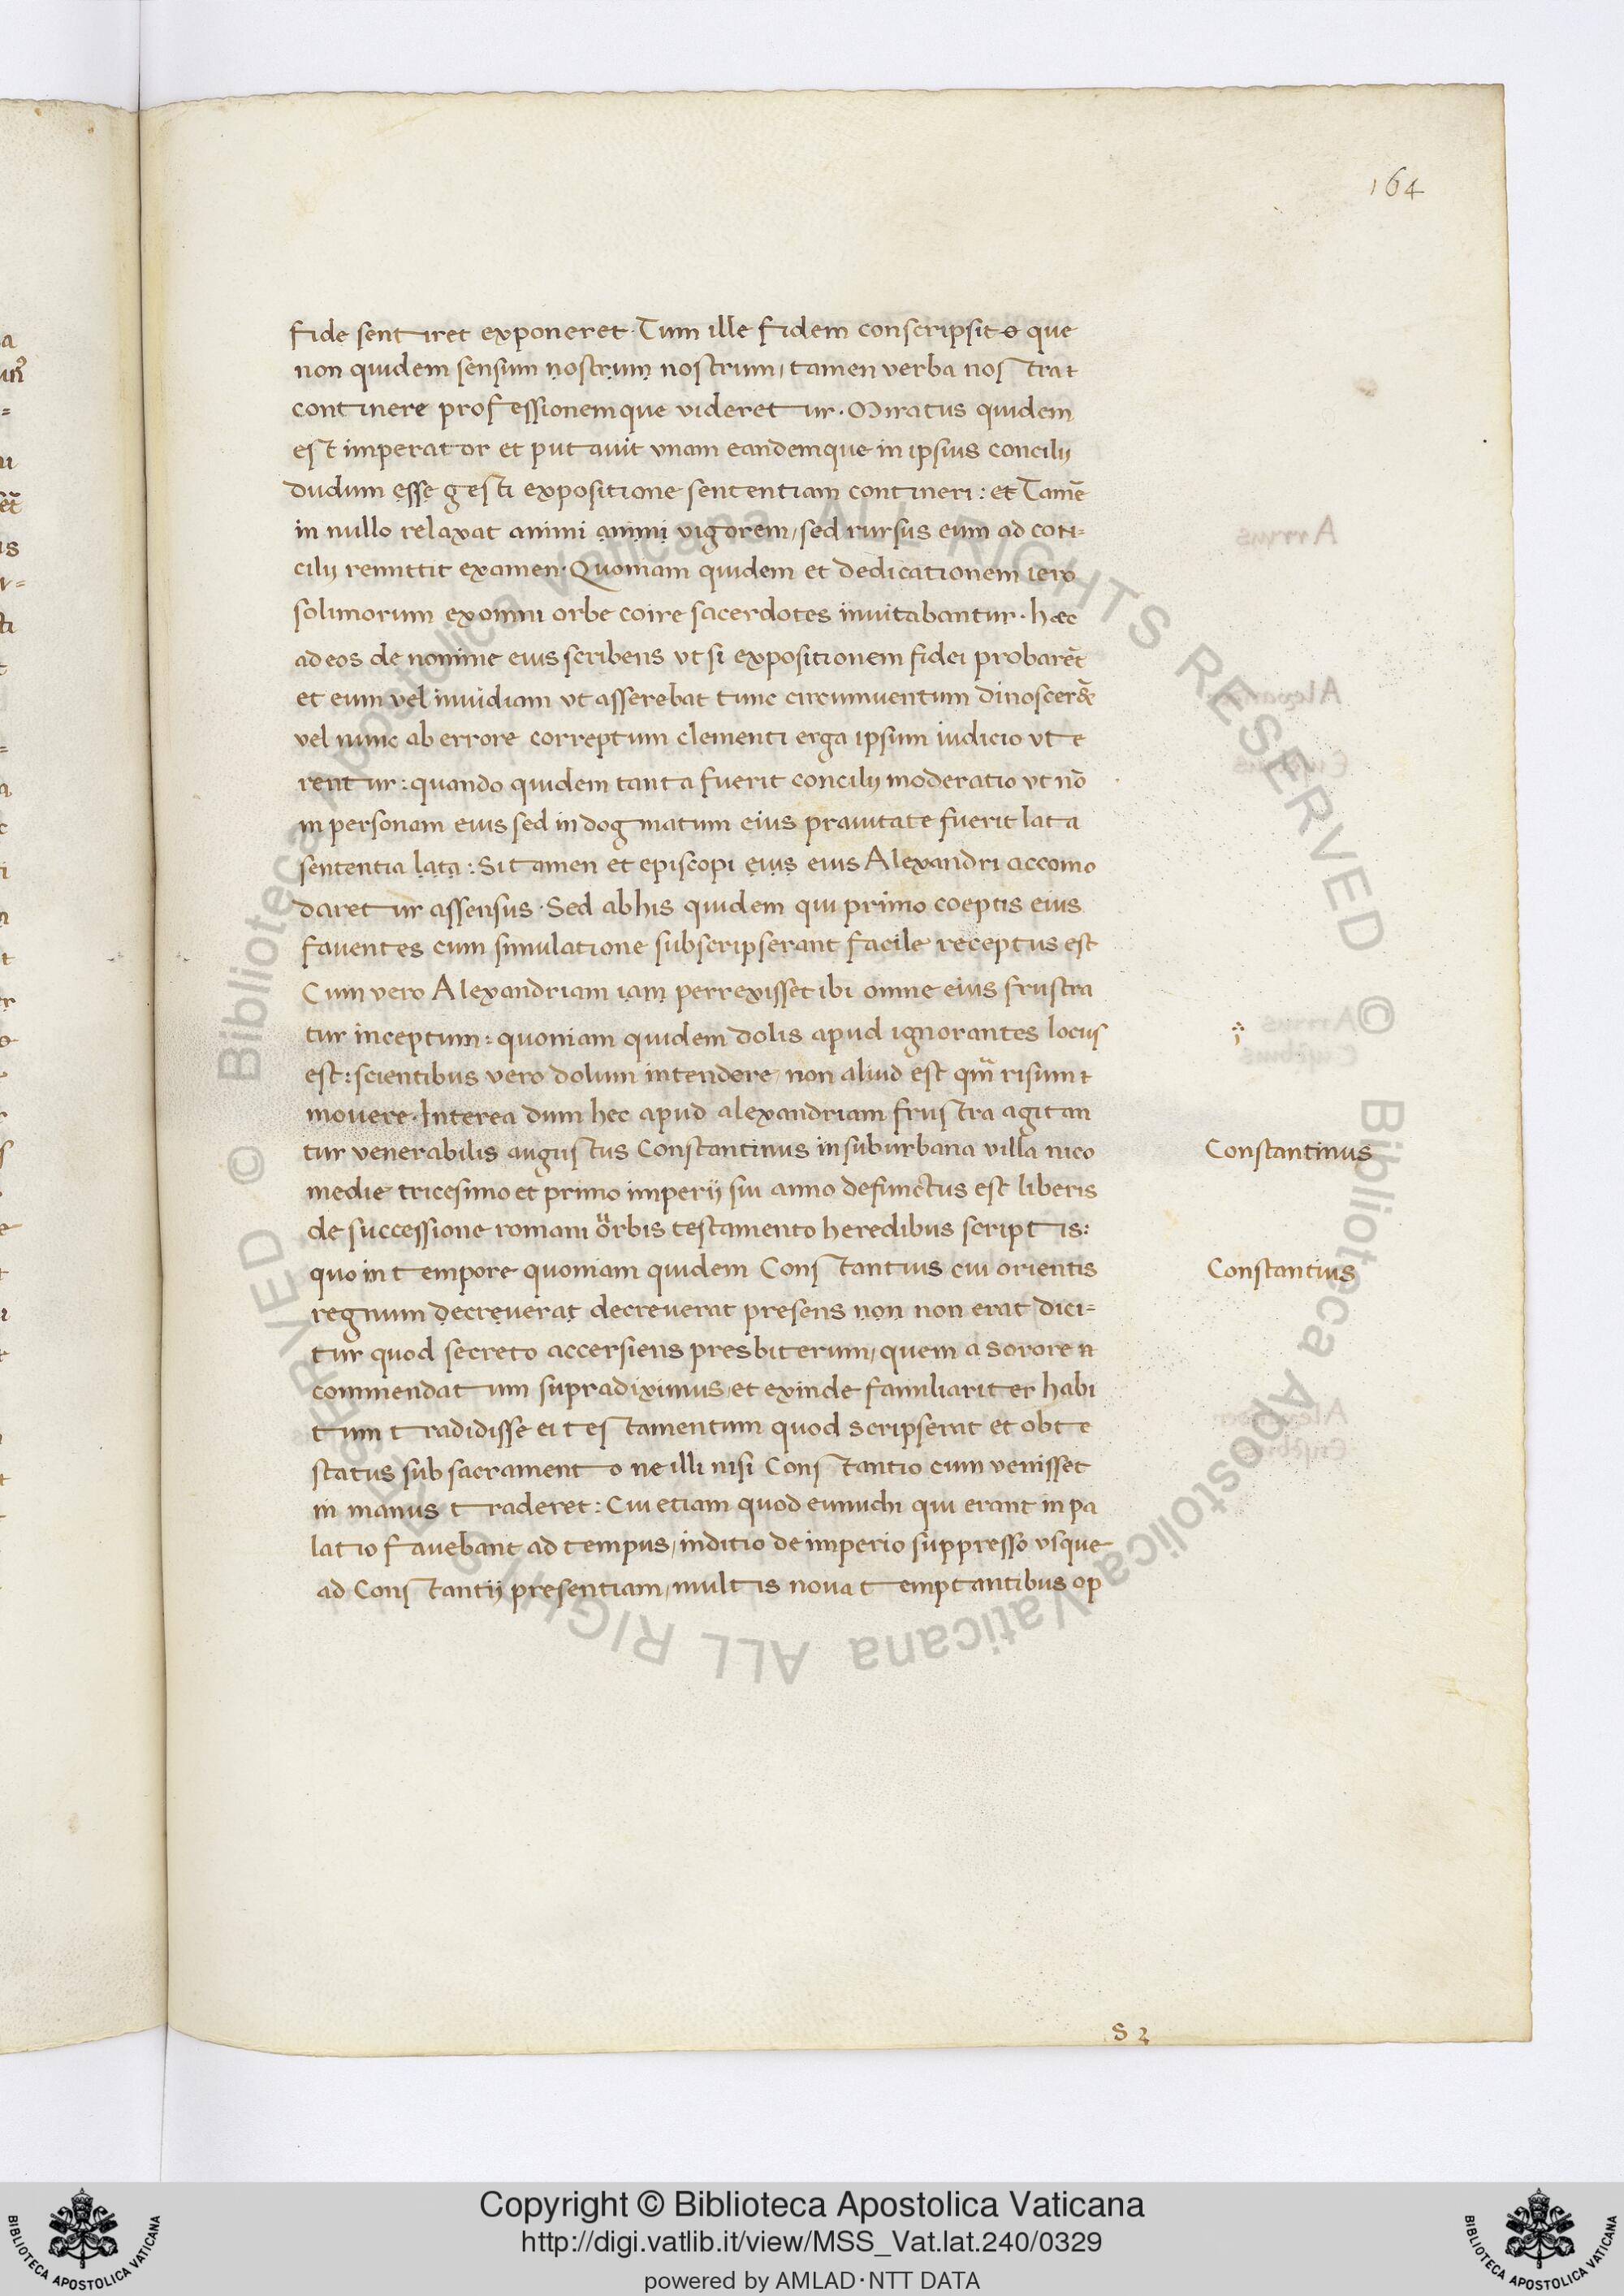 164
fide sentiret exponeret · Tum ille fidem conscripsit o que
non quidem sensum nostrum nostrum, tamen verba nostra t
continere professionemque videretur · Miratus quidem
est imperator et putauit vnam eandemque in ipsius concilij
dudum esse gesti expositione sententiam contineri : et Tamē
in nullo relaxat animi animi vigorem, sed rursus eum ad con=
cilij remittit examen · Quoniam quidem et dedicationem iero
solimorum ex omni orbe coire sacerdotes inuitabantur · hæc
ad eos de nomine eius scribens vt si expositionem fidei probarēt
et eum vel inuidiam vt asserebat tunc circumuentum dinoscerēt
vel nunc ab errore correptum clementi erga ipsum iudicio vt e
rentur : quando quidem tanta fuerit concilij moderatio vt nō
in personam eius sed in dogmatum eius prauitate fuerit lata
sententia lata : Si tamen et episcopi eius eius Alexandri accomo
daretur assensus · Sed ab his quidem qui primo coeptis eius
fauentes cum simulatione subscripserant facile receptus est
Cum vero Alexandriam iam perrexisset ibi omne eius frustra
tur inceptum : quoniam quidem dolis apud ignorantes locus
est : scientibus vero dolum intendere, non aliud est qm̄ risum t
mouere · Interea dum hec apud alexandriam frustra agitan
tur venerabilis augustus Constantinus in suburbana villa nico
medie tricesimo et primo imperij sui anno defunctus est liberis
de successione romani orbis testamento heredibus scriptis :
quo in tempore quoniam quidem Constantius cui orientis
regnum decreuerat decreuerat presens non non erat dici=
tur quod secreto accersiens presbiterum, quem a sorore n
commendatum supradiximus, et exinde familiariter habi
tum tradidisse ei testamentum quod scripserat et obte
status sub sacramento ne illi nisi Constantio cum venisset
in manus traderet : Cui etiam quod eunuchi qui erant in pa
latio fauebant ad tempus, inditio de imperio suppresso vsque
ad Constantij presentiam, multis noua temptantibus op
Constantinus
Constantius
S 3
© Biblioteca Apostolica Vaticana ALL RIGHTS RESERVED © Biblioteca Apostolica Vaticana ALL RIGHTS RESERVED
Copyright © Biblioteca Apostolica Vaticana
http://digi.vatlib.it/view/MSS_Vat.lat.240/0329
powered by AMLAD·NTT DATA
BIBLIOTECA APOSTOLICA VATICANA
BIBLIOTECA APOSTOLICA VATICANA